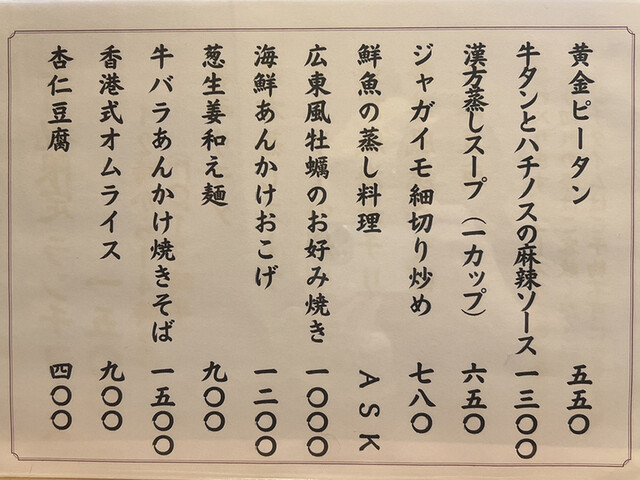 黄金ピータン 五五〇
牛タンとハチノスの麻辣ソース 一三〇〇
漢方蒸しスープ（一カップ） 六五〇
ジャガイモ細切り炒め 七八〇
鮮魚の蒸し料理 ASK
広東風牡蠣のお好み焼き 一〇〇〇
海鮮あんかけおこげ 一二〇〇
葱生姜和え麺 九〇〇
牛バラあんかけ焼きそば 一五〇〇
香港式オムライス 九〇〇
杏仁豆腐 四〇〇